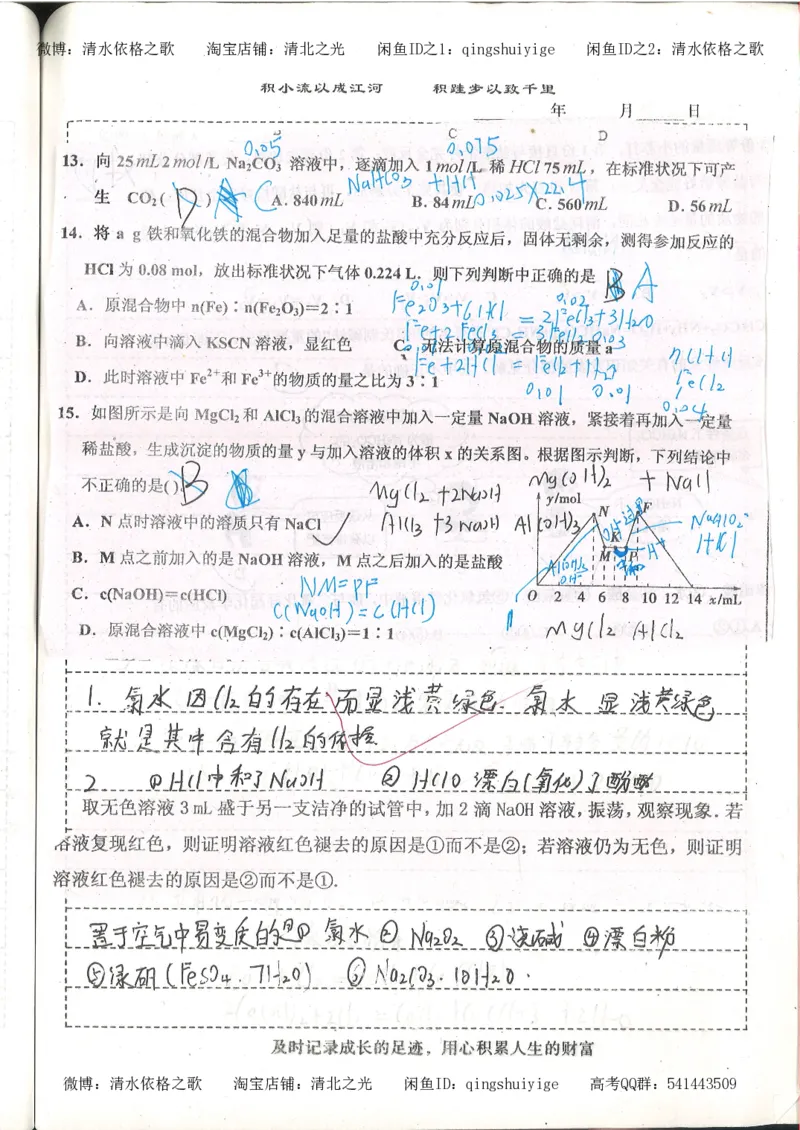 微博：清水依格之歌　　淘宝店铺：清北之光　　闲鱼ID之1：qingshuiyige　　闲鱼ID之2：清水依格之歌
积小流以成江河　　积跬步以致千里
年　　月　　日
B　　C　　D
0.05　　0.075
13．向 25mL 2mol/L Na₂CO₃ 溶液中，逐滴加入 1mol/L 稀 HCl 75mL，在标准状况下可产
NaHCO₃+HCl 0.025×22.4
生 CO₂( D ) C A. 840mL B. 84mL C. 560mL D. 56mL
14．将 a g 铁和氧化铁的混合物加入足量的盐酸中充分反应后，固体无剩余，测得参加反应的
HCl 为 0.08 mol，放出标准状况下气体 0.224 L．则下列判断中正确的是 B A
0.01　　0.02
A．原混合物中 n(Fe)∶n(Fe₂O₃)＝2∶1 Fe₂O₃+6HCl=2FeCl₃+3H₂O
Fe+2FeCl₃=3FeCl₂ 0.03
B．向溶液中滴入 KSCN 溶液，显红色 C．无法计算原混合物的质量 a
Fe+2HCl=FeCl₂+H₂ FeCl₂
D．此时溶液中 Fe²⁺和 Fe³⁺的物质的量之比为 3∶1
0.01 0.01 0.04
15．如图所示是向 MgCl₂ 和 AlCl₃ 的混合溶液中加入一定量 NaOH 溶液，紧接着再加入一定量
稀盐酸，生成沉淀的物质的量 y 与加入溶液的体积 x 的关系图。根据图示判断，下列结论中
不正确的是( ) B MgCl₂+2NaOH Mg(OH)₂ + NaCl
A．N 点时溶液中的溶质只有 NaCl AlCl₃+3NaOH Al(OH)₃
y/mol N F NaAlO₂
HCl
B．M 点之前加入的是 NaOH 溶液，M 点之后加入的是盐酸
M P H⁺
C．c(NaOH)＝c(HCl) NM=PF
c(NaOH)=c(HCl)
O 2 4 6 8 10 12 14 x/mL
D．原混合溶液中 c(MgCl₂)∶c(AlCl₃)＝1∶1 MgCl₂ AlCl₃
1. 氯水因Cl₂的存在而显浅黄绿色. 氯水显浅黄绿色
就是其中含有Cl₂的依据
2. ①HCl中和了NaOH ②HClO漂白(氧化)了酚酞
取无色溶液 3 mL 盛于另一支洁净的试管中，加 2 滴 NaOH 溶液，振荡，观察现象．若
溶液复现红色，则证明溶液红色褪去的原因是①而不是②；若溶液仍为无色，则证明
溶液红色褪去的原因是②而不是①.
置于空气中易变质的是①氯水 ②Na₂O₂ ③烧碱 ④漂白粉
⑤绿矾(FeSO₄·7H₂O) ⑥Na₂CO₃·10H₂O.
及时记录成长的足迹，用心积累人生的财富
微博：清水依格之歌　　淘宝店铺：清北之光　　闲鱼ID：qingshuiyige　　高考QQ群：541443509